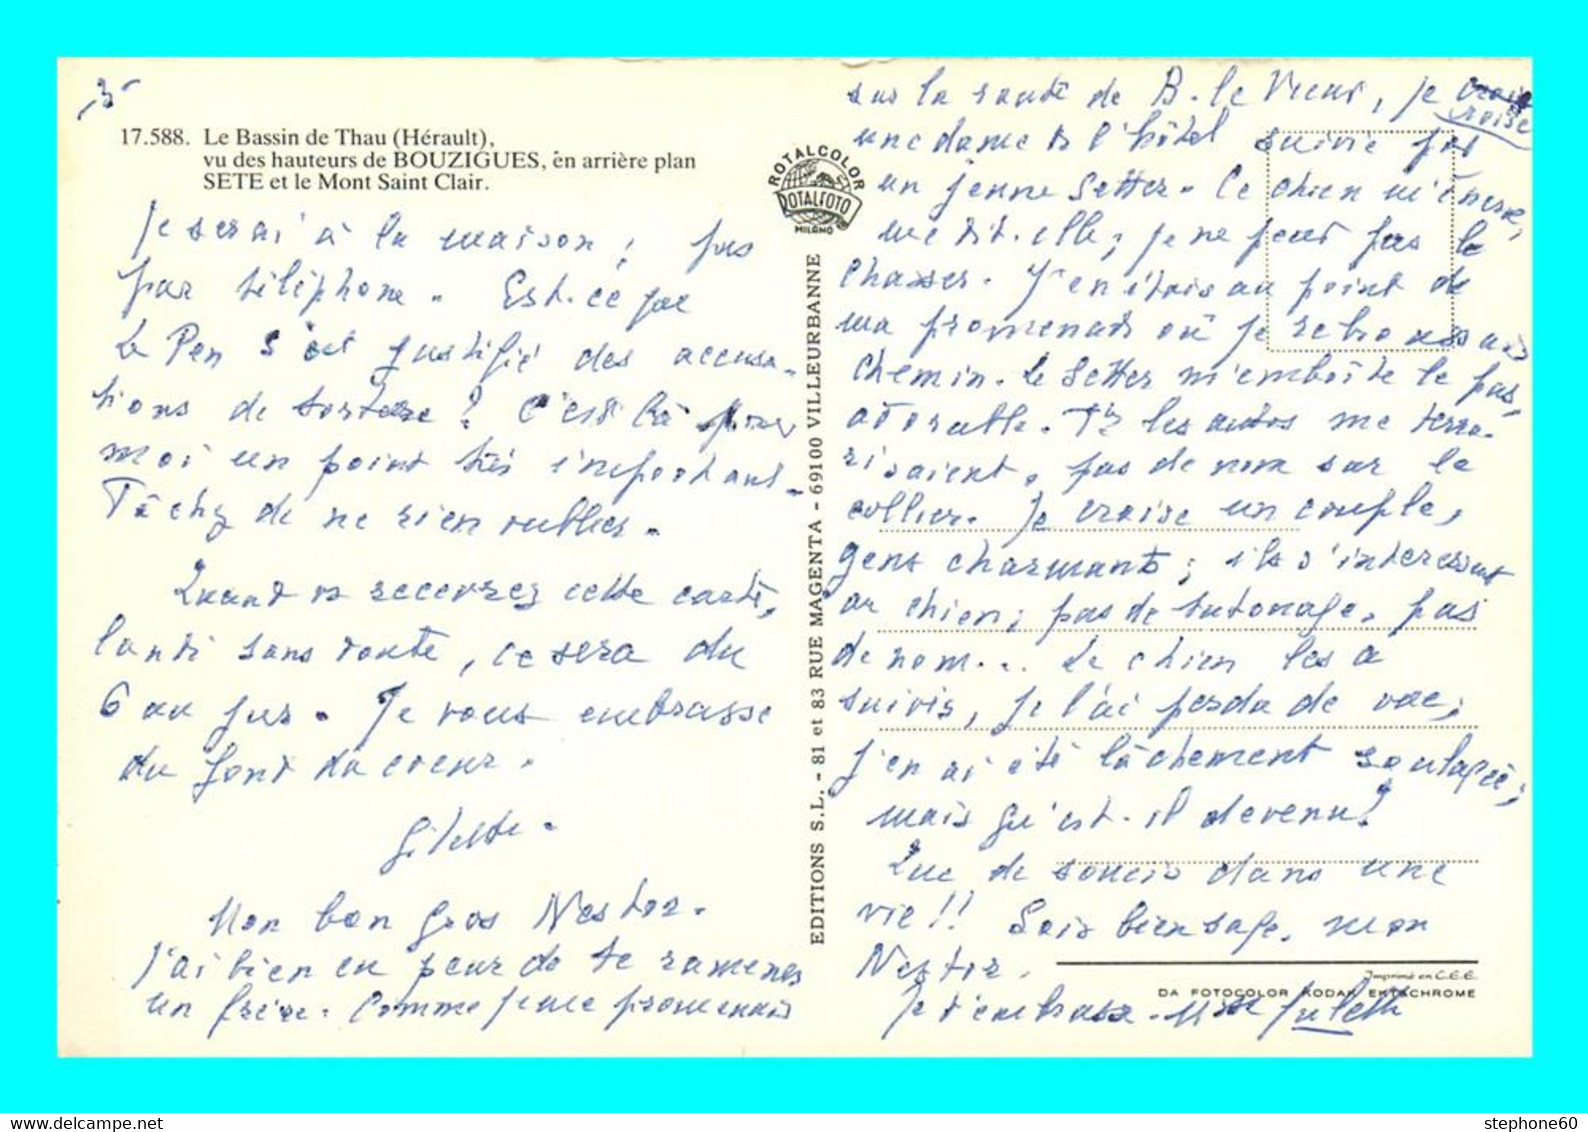 -3-
17.588. Le Bassin de Thau (Hérault),
vu des hauteurs de BOUZIGUES, en arrière plan
SETE et le Mont Saint Clair.
je serai à la maison, pas
par téléphone. Est-ce que
Le Pen s'est justifié des accusa-
tions de torture? C'est là pour
moi un point très important.
Tâchz de ne rien oublier.
Quand vs recevrez cette carte,
lundi sans doute, ce sera du
6 au jus. Je vous embrasse
du fond du coeur.
Mon bon gros Nestor.
J'ai bien eu peur de te ramener
un frère. Comme je me promenais
ROTALCOLOR
ROTALFOTO
MILANO
EDITIONS S.L. - 81 et 83 RUE MAGENTA - 69100 VILLEURBANNE
sur la santé de B. le Vieux, je croise
une dame de l'hôtel suivie par
un jeune Setter. Ce chien m'énerve,
me dit-elle, je ne peux pas le
chasser. J'en étais au point de
ma promenade où je rebroussais
chemin. Le Setter m'emboîte le pas,
adorable. Ts les autos me terro-
risaient, pas de nom sur le
collier. Je croise un couple,
gens charmants; ils s'intéressent
au chien; pas de tatouage, pas
de nom... Le chien les a
suivis, je l'ai perdu de vue;
j'en ai été lâchement soulagée;
mais qu'est-il devenu?
Que de soucis dans une
vie!! Sois bien sage, mon
Nestor.
Je t'embrasse.
Imprimé en C.E.E.
DA FOTOCOLOR KODAK EKTACHROME
stephone60